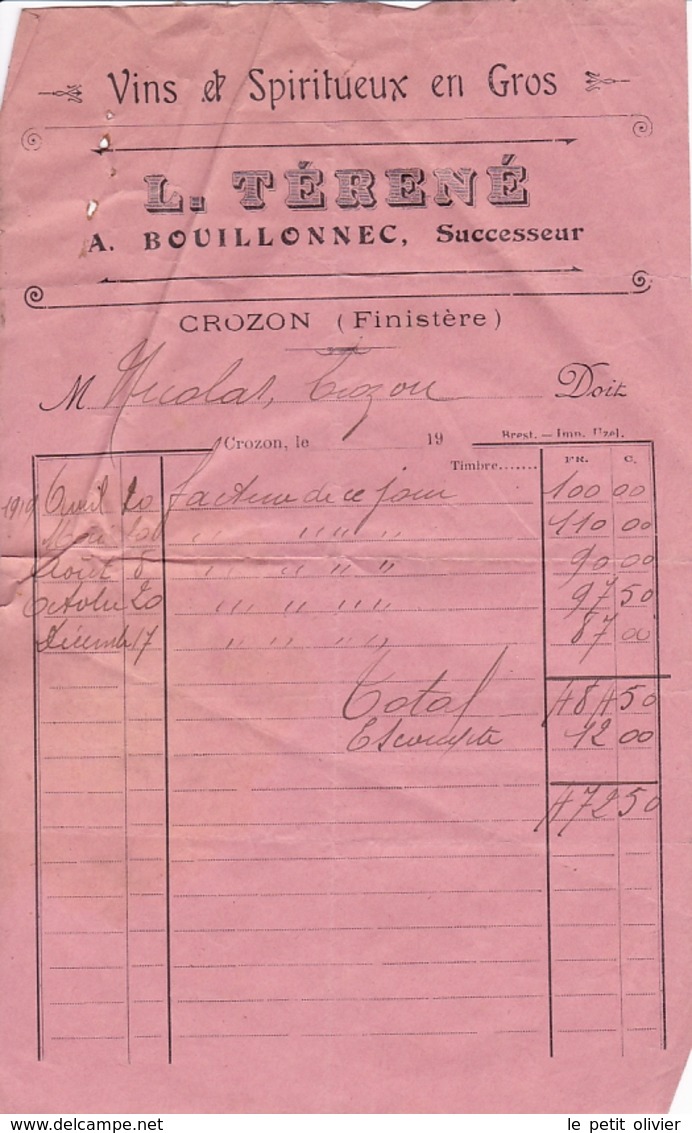 Vins et Spiritueux en Gros
L. TÉRENÉ
A. BOUILLONNEC, Successeur
CROZON (Finistère)
M Nicolas, Crozon Doit
Crozon, le 19 Brest. — Imp. Uzel.
Timbre....... FR. C.
1919 Avril 20 facture de ce jour 100 00
Mai " " " " 110 00
Août 8 " " " " 90 00
Octobre 20 " " " " 97 50
Décembre 17 " " " " 87 00
Total 484 50
Escompte 12 00
472 50
le petit olivier